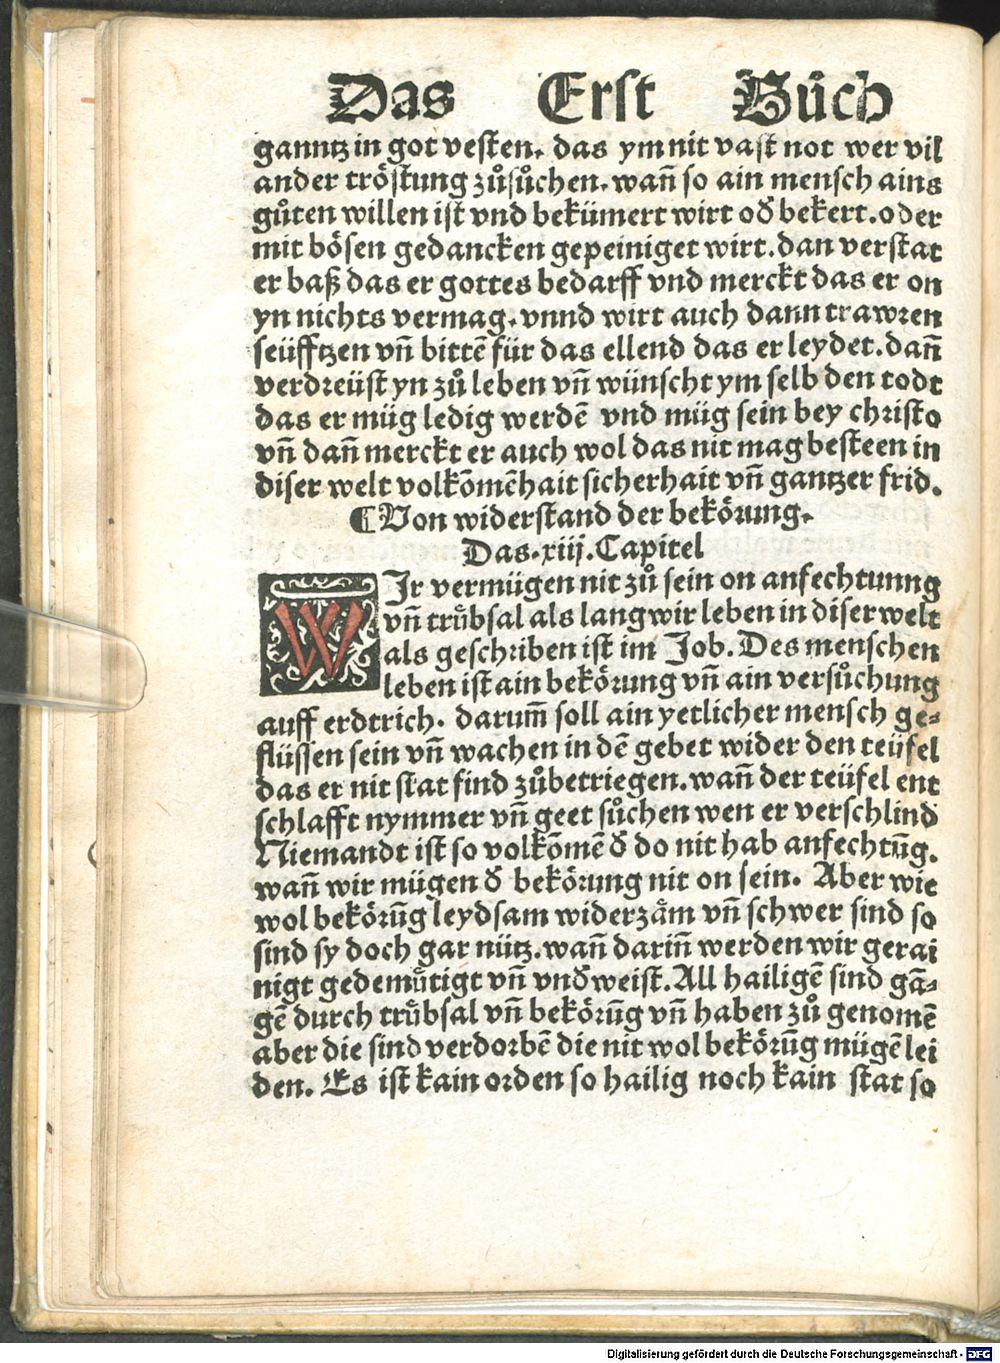 Das Erst Bůch
ganntz in got vesten. das ym nit vast not wer vil
ander tröstung zůsůchen. wañ so ain mensch ains
gůten willen ist vnd bekümert wirt oď bekert. oder
mit bösen gedancken gepeiniget wirt. dan verstat
er baß das er gottes bedarff vnd merckt das er on
yn nichts vermag. vnnd wirt auch dann trawren
seüfftzen vñ bittē für das ellend das er leydet. dañ
verdreüst yn zů leben vñ wünscht ym selb den todt
das er müg ledig werdē vnd müg sein bey christo
vñ dañ merckt er auch wol das nit mag besteen in
diser welt volkōmēhait sicherhait vñ gantzer frid.
¶ Von widerstand der bekörung.
Das. xiij. Capitel
WIr vermügen nit zů sein on anfechtunng
vñ trůbsal als lang wir leben in diser welt
als geschriben ist im Job. Des menschen
leben ist ain bekörung vñ ain versůchung
auff erdtrich. darum̄ soll ain yetlicher mensch ge⸗
flüssen sein vñ wachen in dē gebet wider den teüfel
das er nit stat find zůbetriegen. wañ der teüfel ent
schlafft nymmer vñ geet sůchen wen er verschlind
Niemandt ist so volkōmē ď do nit hab anfechtūg.
wañ wir mügen ď bekörung nit on sein. Aber wie
wol bekörūg leydsam widerzåm vñ schwer sind so
sind sy doch gar nütz. wañ dariñ werden wir gerai
nigt gedemůtigt vñ vnďweist. All hailigē sind gā⸗
gē durch trůbsal vñ bekörūg vñ haben zů genomē
aber die sind verdorbē die nit wol bekörūg mügē lei
den. Es ist kain orden so hailig noch kain stat so
Digitalisierung gefördert durch die Deutsche Forschungsgemeinschaft - DFG